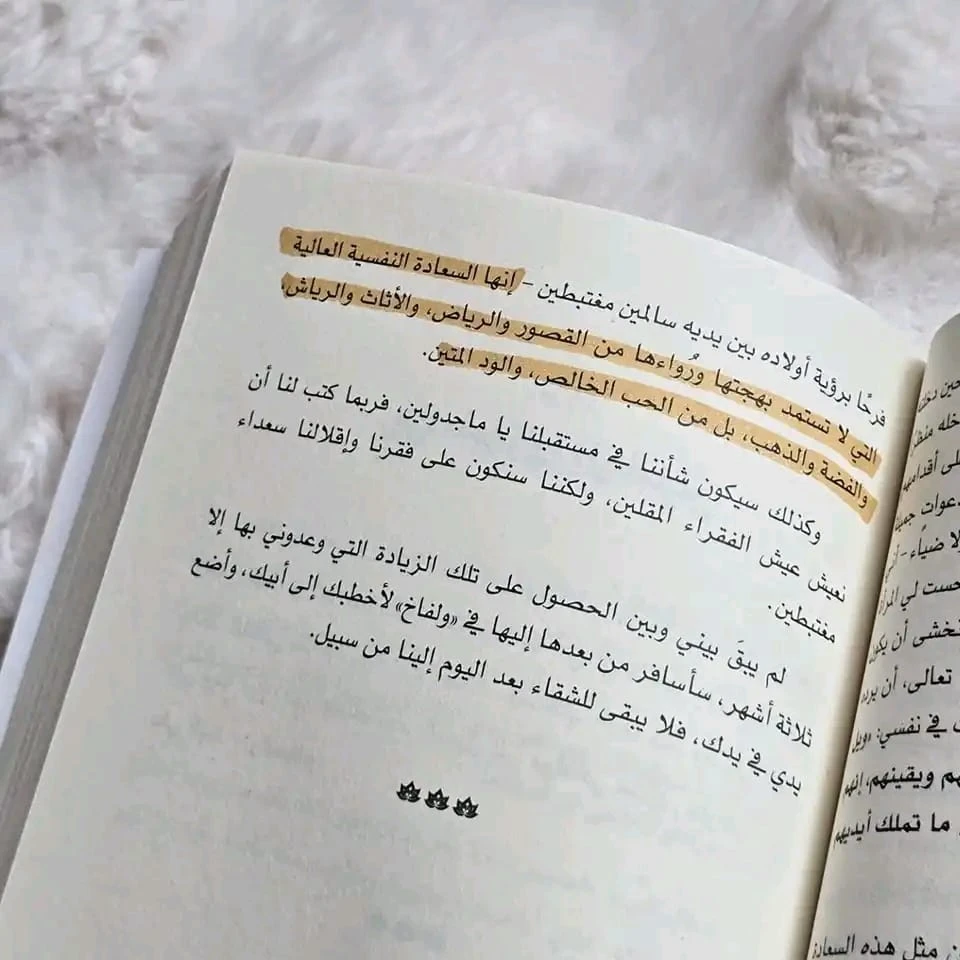 حين
خله
على أقدامهم
دعوات
لا ضياء –
ست لي المرأة
تخشى أن يكون
تعالى، أن
في نفسي: «ويل
هم ويقينهم، إنهم
ما تملك أيديهم
مثل هذه السعادة
فرحًا برؤية أولاده بين يديه سالمين مغتبطين – إنها السعادة النفسية العالية
التي لا تستمد بهجتها ورُواءها من القصور والرياض، والأثاث والرياش،
والفضة والذهب، بل من الحب الخالص، والود المتين.
وكذلك سيكون شأننا في مستقبلنا يا ماجدولين، فربما كتب لنا أن
نعيش عيش الفقراء المقلين، ولكننا سنكون على فقرنا وإقلالنا سعداء
مغتبطين.
لم يبقَ بيني وبين الحصول على تلك الزيادة التي وعدوني بها إلا
ثلاثة أشهر، سأسافر من بعدها إليها في «ولفاخ» لأخطبك إلى أبيك، وأضع
يدي في يدك، فلا يبقى للشقاء بعد اليوم إلينا من سبيل.